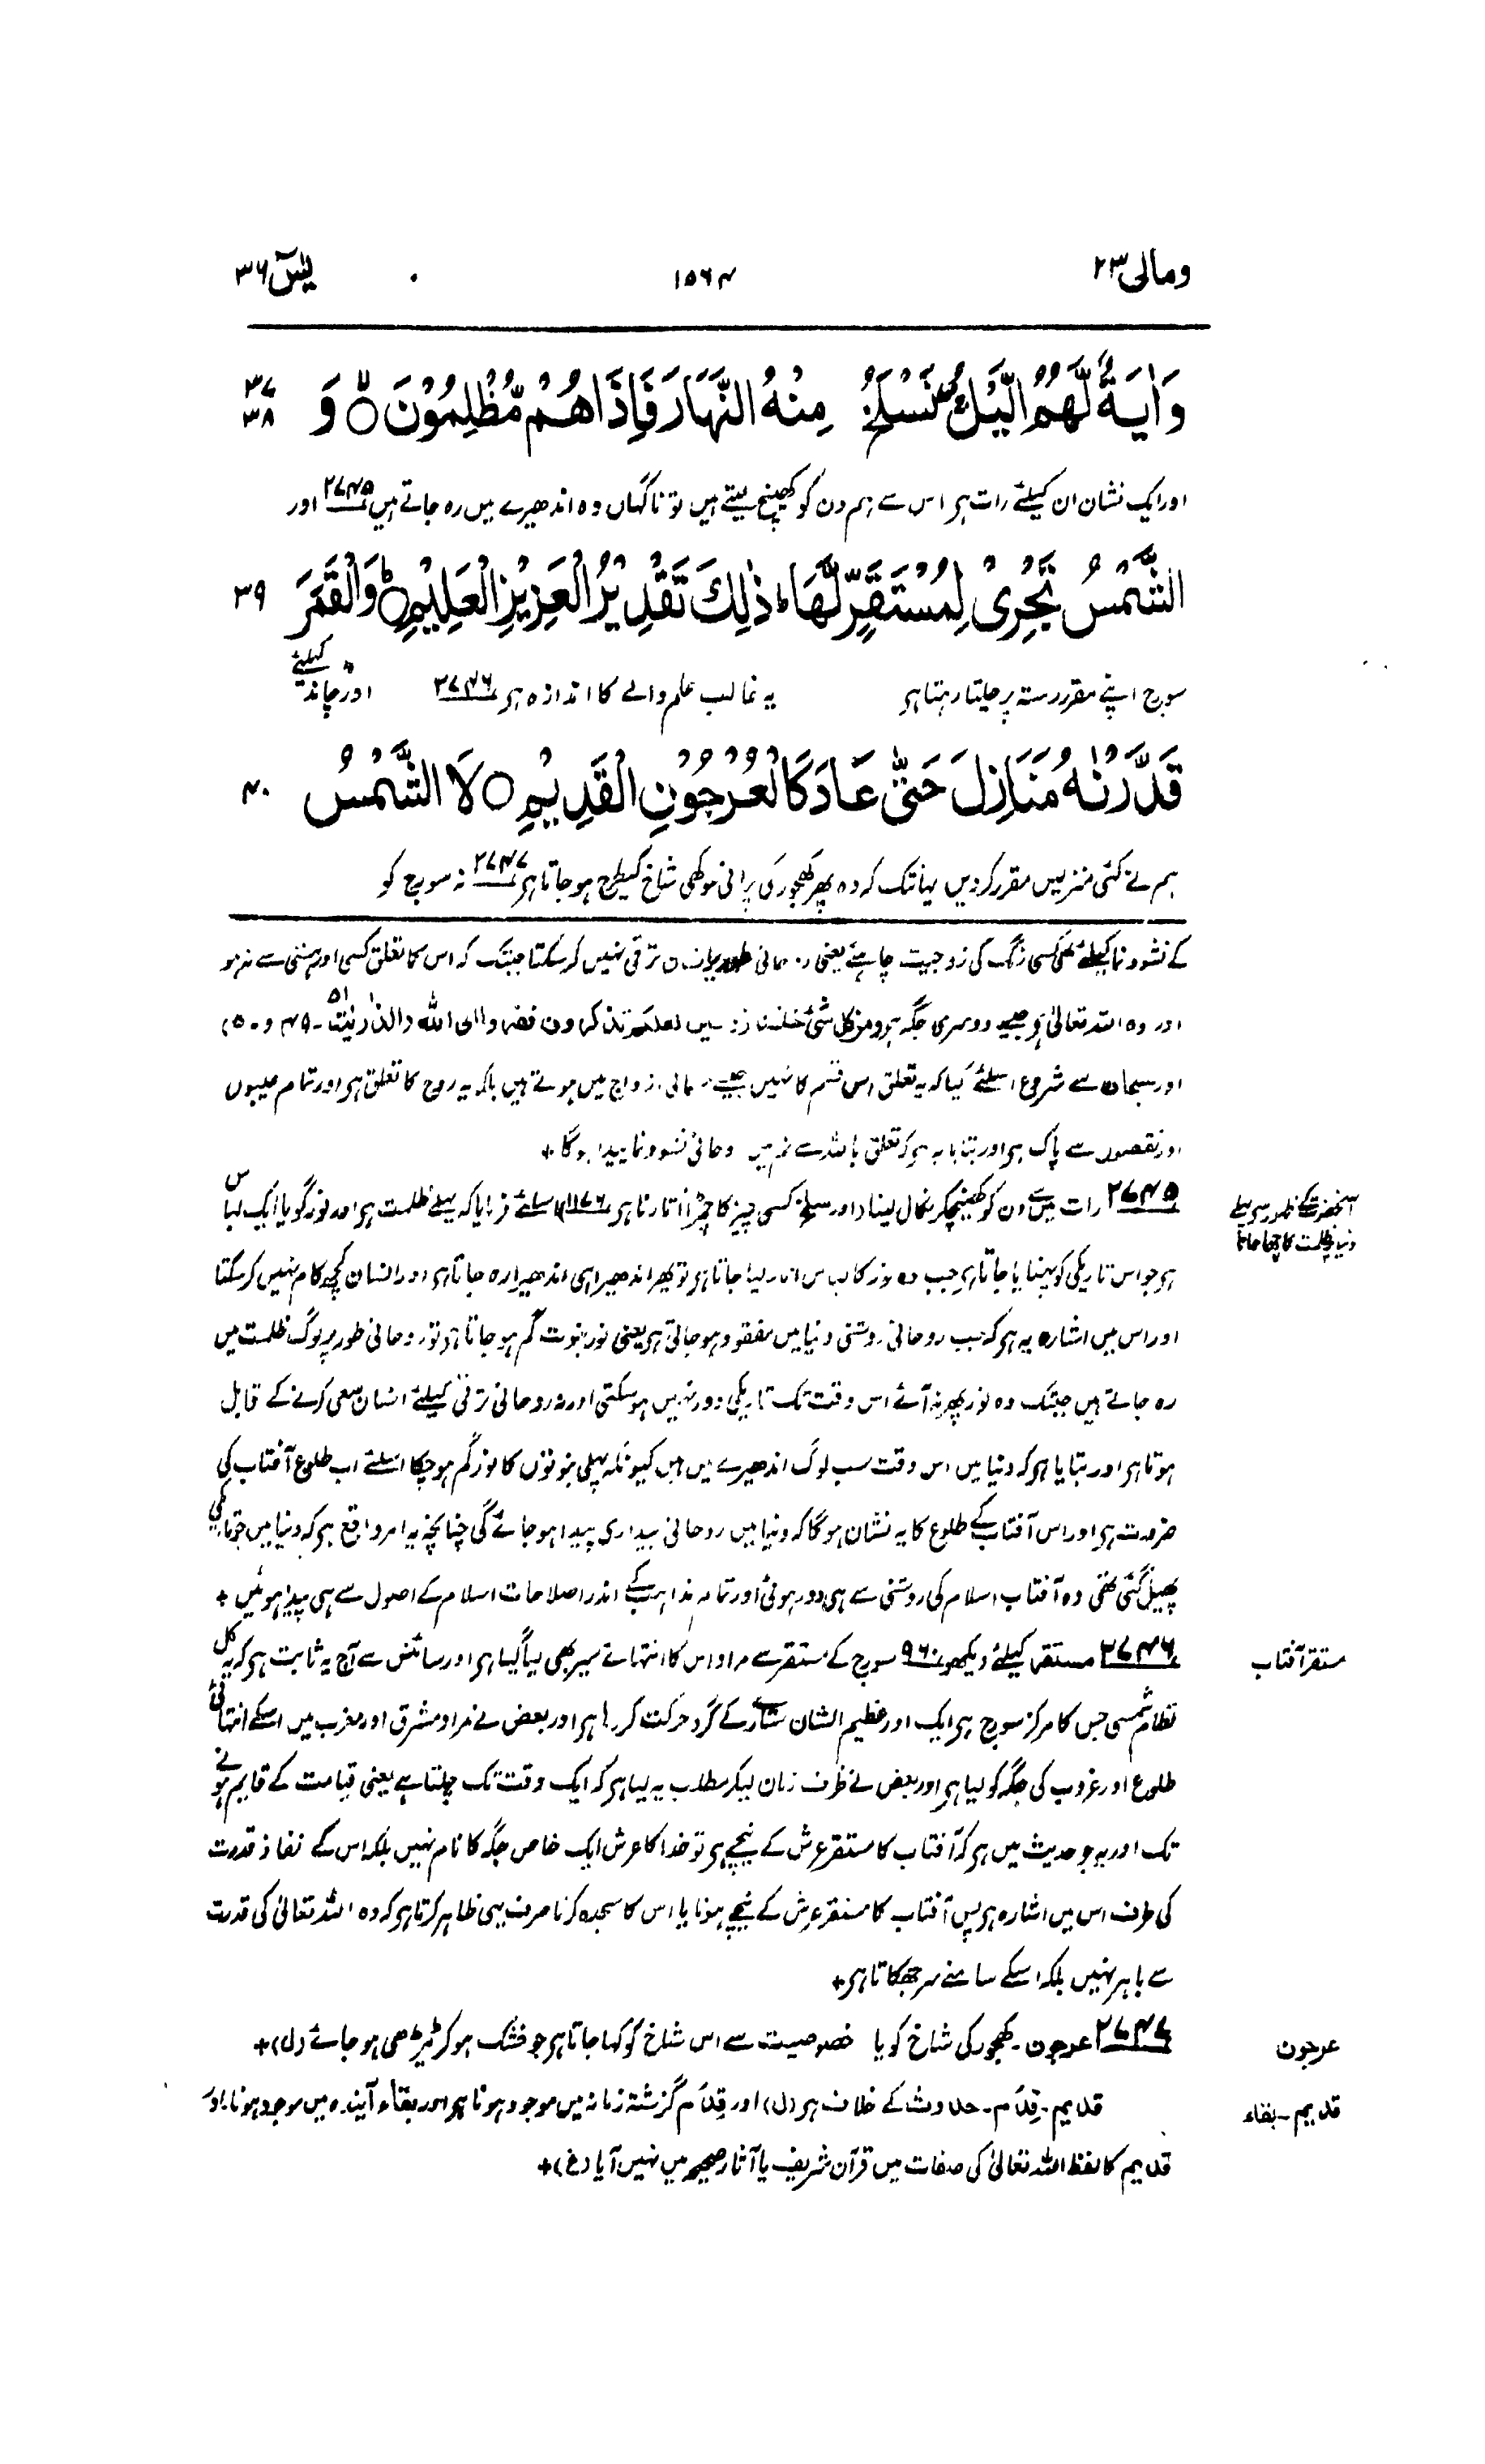 ومالی ۲۳ ۱۵۶۴ یٰسٓ ۳۶
وَاٰیَةٌ لَّهُمُ الَّیْلُ ۖۚ نَسْلَخُ مِنْهُ النَّهَارَ فَاِذَاهُمْ مُّظْلِمُوْنَ ۙ وَ ۳۷ ۳۸
اور ایک نشان ان کیلئے رات ہر اس سے ہم دن کو کھینچ لیتے ہیں تو ناگہاں وہ اندھیرے میں رہ جاتے ہیں ۲۷۴۵ اور
الشَّمْسُ تَجْرِیْ لِمُسْتَقَرٍّ لَّهَا ؕ ذٰلِكَ تَقْدِیْرُ الْعَزِیْزِ الْعَلِیْمِ ؕ وَالْقَمَرَ ۳۹
سورج اپنے مقرر رستہ پر چلتا رہتا ہر یہ غالب علم والے کا اندازہ ہر ۲۷۴۶ اور چاند کیلئے
قَدَّرْنٰهُ مَنَازِلَ حَتّٰی عَادَ كَالْعُرْجُوْنِ الْقَدِیْمِ ○ لَا الشَّمْسُ ۴۰
ہم نے کئی منزلیں مقرر کردیں یہانتک کہ وہ پھر کھجور کی پرانی سوکھی شاخ کیطرح ہو جاتا ہر ۲۷۴۷ نہ سورج کو
کے نشوونما کیلئے بھی کسی رنگ کی زوجیت چاہئے یعنی طور پر انسان ترقی نہیں کر سکتا جبتک کہ اس کا تعلق کسی اور ہستی سے نہ ہو
اور وہ اللہ تعالیٰ ہر جیسے دوسری جگہ ہر ومن کل شئ خلقنا زوجین لعلکم تذکرون ففروا الی اللہ (الذٰریٰت ۵۱ ۔ ۴۹ و ۵۰)
اور سبحان سے شروع اسلئے کیا کہ یہ تعلق اس قسم کا نہیں جیسے ازواج میں ہوتے ہیں بلکہ یہ روح کا تعلق ہر اور تمام عیبوں
اور نقصوں سے پاک ہر اور بتایا یہ ہر کہ تعلق باللہ سے نشوونما پیدا ہوگا +
۲۷۴۵ رات میں سے دن کو کھینچکر نکال لینا (اور سلخ کسی چیز کا چمڑا اتارنا ہر ۱۱۷۶) اسلئے فرمایا کہ پہلے ظلمت ہر اور نور گویا ایک لباس
آنحضرت کے ظہور سے پہلے
دنیا پر ظلمت کا چھا جانا
ہر جو اس تاریکی کو پہنایا جاتا ہر جب وہ نور کا لباس اتار لیا جاتا ہر تو پھر اندھیرا ہی اندھیرا رہ جاتا ہر اور انسان کچھ کام نہیں کر سکتا
اور اس میں اشارہ یہ ہر کہ جب روحانی روشنی دنیا میں مفقود ہو جاتی ہر یعنی نور نبوت گم ہو جاتا ہر تو روحانی طور پر لوگ ظلمت میں
رہ جاتے ہیں جبتک وہ نور پھر نہ آئے اس وقت تک تاریکی دور نہیں ہو سکتی اور نہ روحانی ترقی کیلئے انسان سعی کرنے کے قابل
ہوتا ہر اور بتایا ہر کہ دنیا میں اس وقت سب لوگ اندھیرے میں ہیں کیونکہ پہلی نبوتوں کا نور گم ہو چکا اسلئے اب طلوع آفتاب کی
ضرورت ہر اور اس آفتاب کے طلوع کا یہ نشان ہوگا کہ دنیا میں روحانی بیداری پیدا ہو جائے گی چنانچہ یہ امر واقع ہر کہ دنیا میں جو تاریکی
پھیل گئی تھی وہ آفتاب اسلام کی روشنی سے ہی دور ہوئی اور تمام مذاہب کے اندر اصلاحات اسلام کے اصول سے ہی پیدا ہوئیں +
۲۷۴۶ مستقر کیلئے دیکھو ۹۶۰ سورج کے مستقر سے مراد اس کا انتہائے سیر بھی لیا گیا ہر اور سائنس سے آج یہ ثابت ہر کہ یہ کل
مستقر آفتاب
نظام شمسی جس کا مرکز سورج ہر ایک اور عظیم الشان ستارے کے گرد حرکت کر رہا ہر اور بعض نے مراد مشرق اور مغرب میں اسکے انتہائی
طلوع اور غروب کی جگہ کو لیا ہر اور بعض نے ظرف زمان لیکر مطلب یہ لیا ہر کہ ایک وقت تک چلتا ہے یعنی قیامت کے قایم ہونے
تک اور یہ جو حدیث میں ہر کہ آفتاب کا مستقر عرش کے نیچے ہر تو خدا کا عرش ایک خاص جگہ کا نام نہیں بلکہ اس کے نفاذ قدرت
کی طرف اس میں اشارہ ہر پس آفتاب کا مستقر عرش کے نیچے ہونا یا اس کا سجدہ کرنا صرف یہی ظاہر کرتا ہر کہ وہ اللہ تعالیٰ کی قدرت
سے باہر نہیں بلکہ اسکے سامنے سر جھکاتا ہر +
۲۷۴۷ عرجون ۔ کھجور کی شاخ کو یا خصوصیت سے اس شاخ کو کہا جاتا ہر جو خشک ہو کر ٹیڑھی ہو جائے (ل) +
عرجون
قدیم ۔ قِدَم ۔ حدوث کے خلاف ہر (ل) اور قِدَم گزشتہ زمانہ میں موجود ہونا ہر اور بقاء آیندہ میں موجود ہونا اور
قدیم ۔ بقاء
قدیم کا لفظ اللہ تعالیٰ کی صفات میں قرآن شریف یا آثار صحیحہ میں نہیں آیا (غ) +